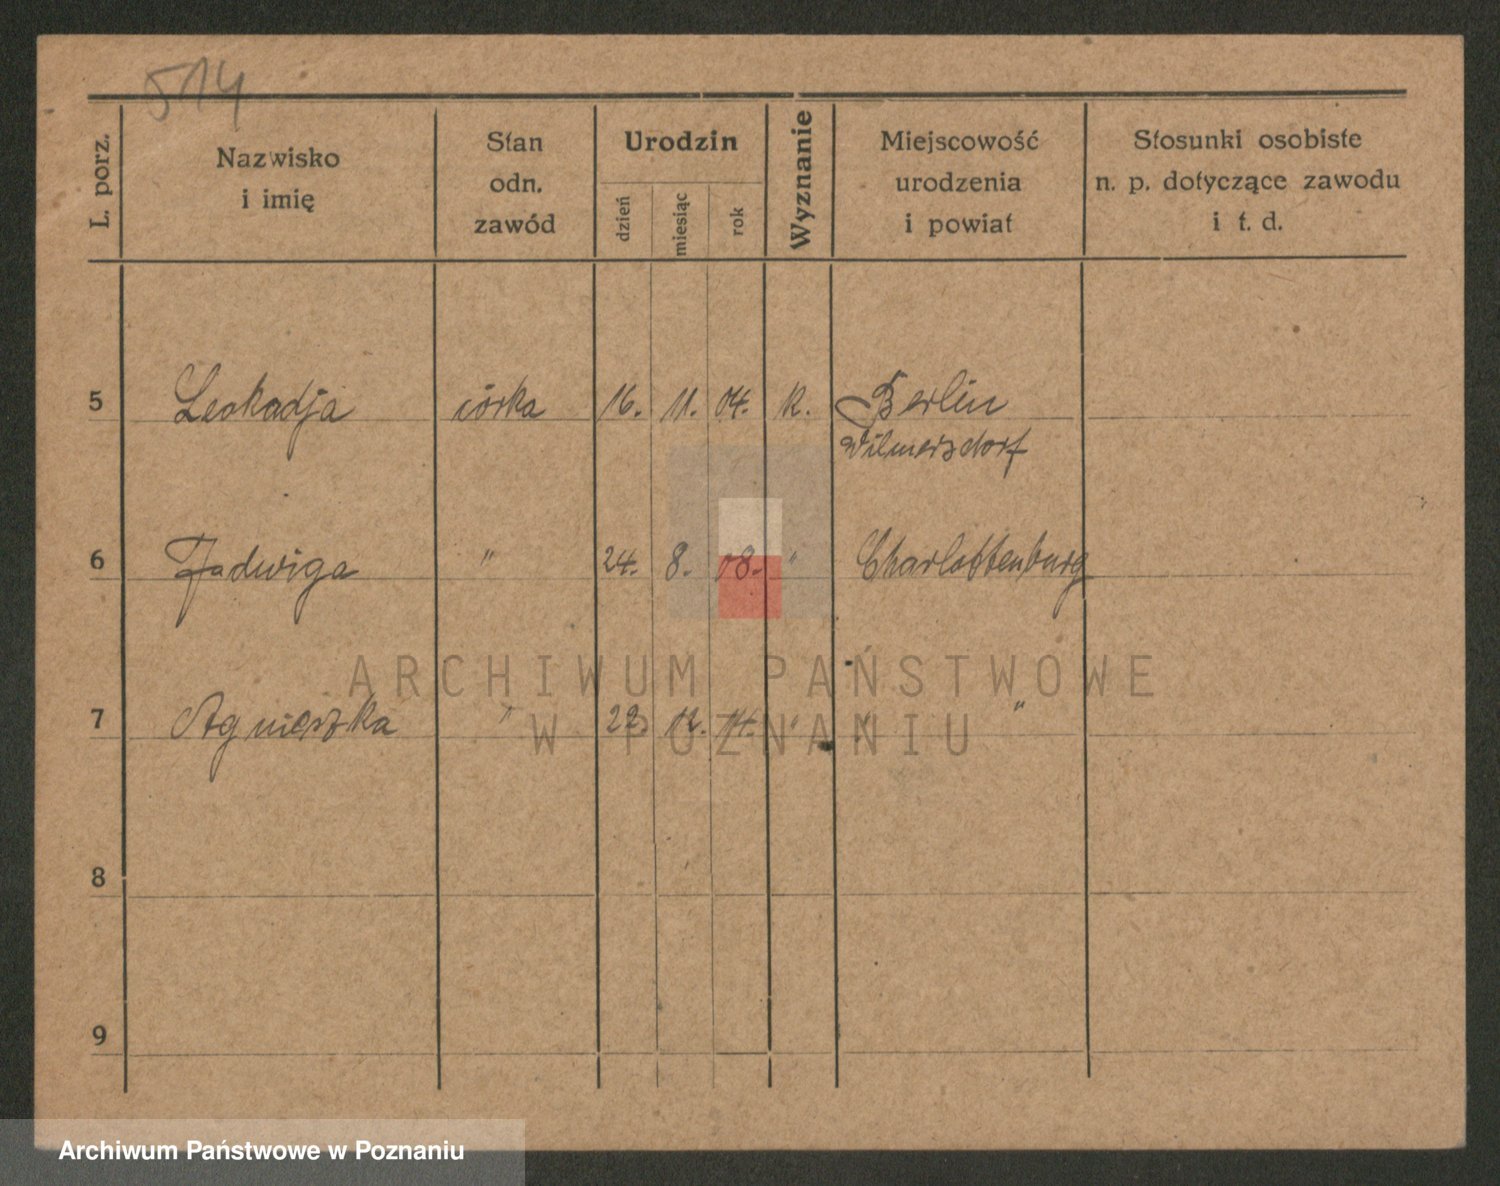 514
L. porz.
Nazwisko
i imię
Stan
odn.
zawód
Urodzin
dzień
miesiąc
rok
Wyznanie
Miejscowość
urodzenia
i powiat
Stosunki osobiste
n. p. dotyczące zawodu
i t. d.
5 Leokadja córka 16. 11. 04. k. Berlin
Wilmersdorf
6 Jadwiga " 24. 8. 08. " Charlottenburg
ARCHIWUM PAŃSTWOWE
7 Agnieszka " 22. 12. 14. " " "
W POZNANIU
8
9
Archiwum Państwowe w Poznaniu